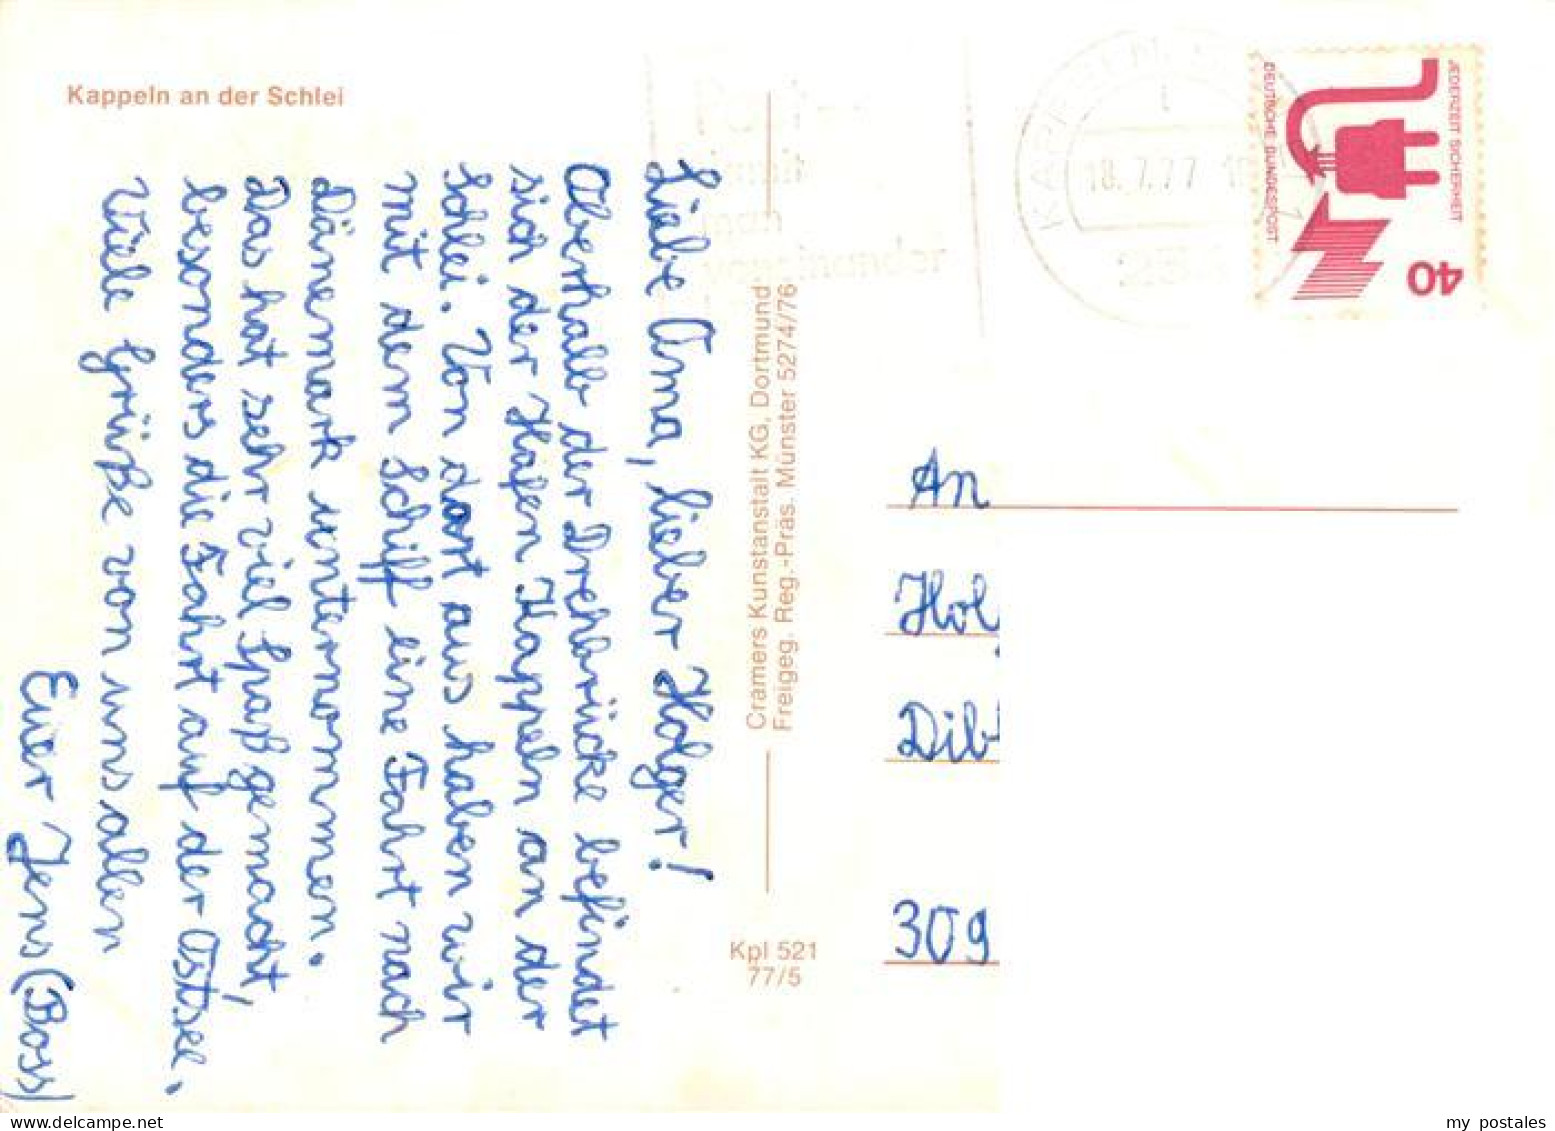 Kappeln an der Schlei
Liebe Oma, lieber Holger!
Oberhalb der Drehbrücke befindet
sich der Hafen Kappeln an der
Schlei. Von dort aus haben wir
mit dem Schiff eine Fahrt nach
Dänemark unternommen.
Das hat sehr viel Spaß gemacht,
besonders die Fahrt auf der Ostsee.
Viele Grüße von uns allen
Euer Jens (Boss)
Cramers Kunstanstalt KG, Dortmund
Freigeg. Reg.-Präs. Münster 5274/76
Kpl 521
77/5
man
voneinander
18.7.77
JEDERZEIT SICHERHEIT
DEUTSCHE BUNDESPOST
40
An
Hol
Dib
309
my postales